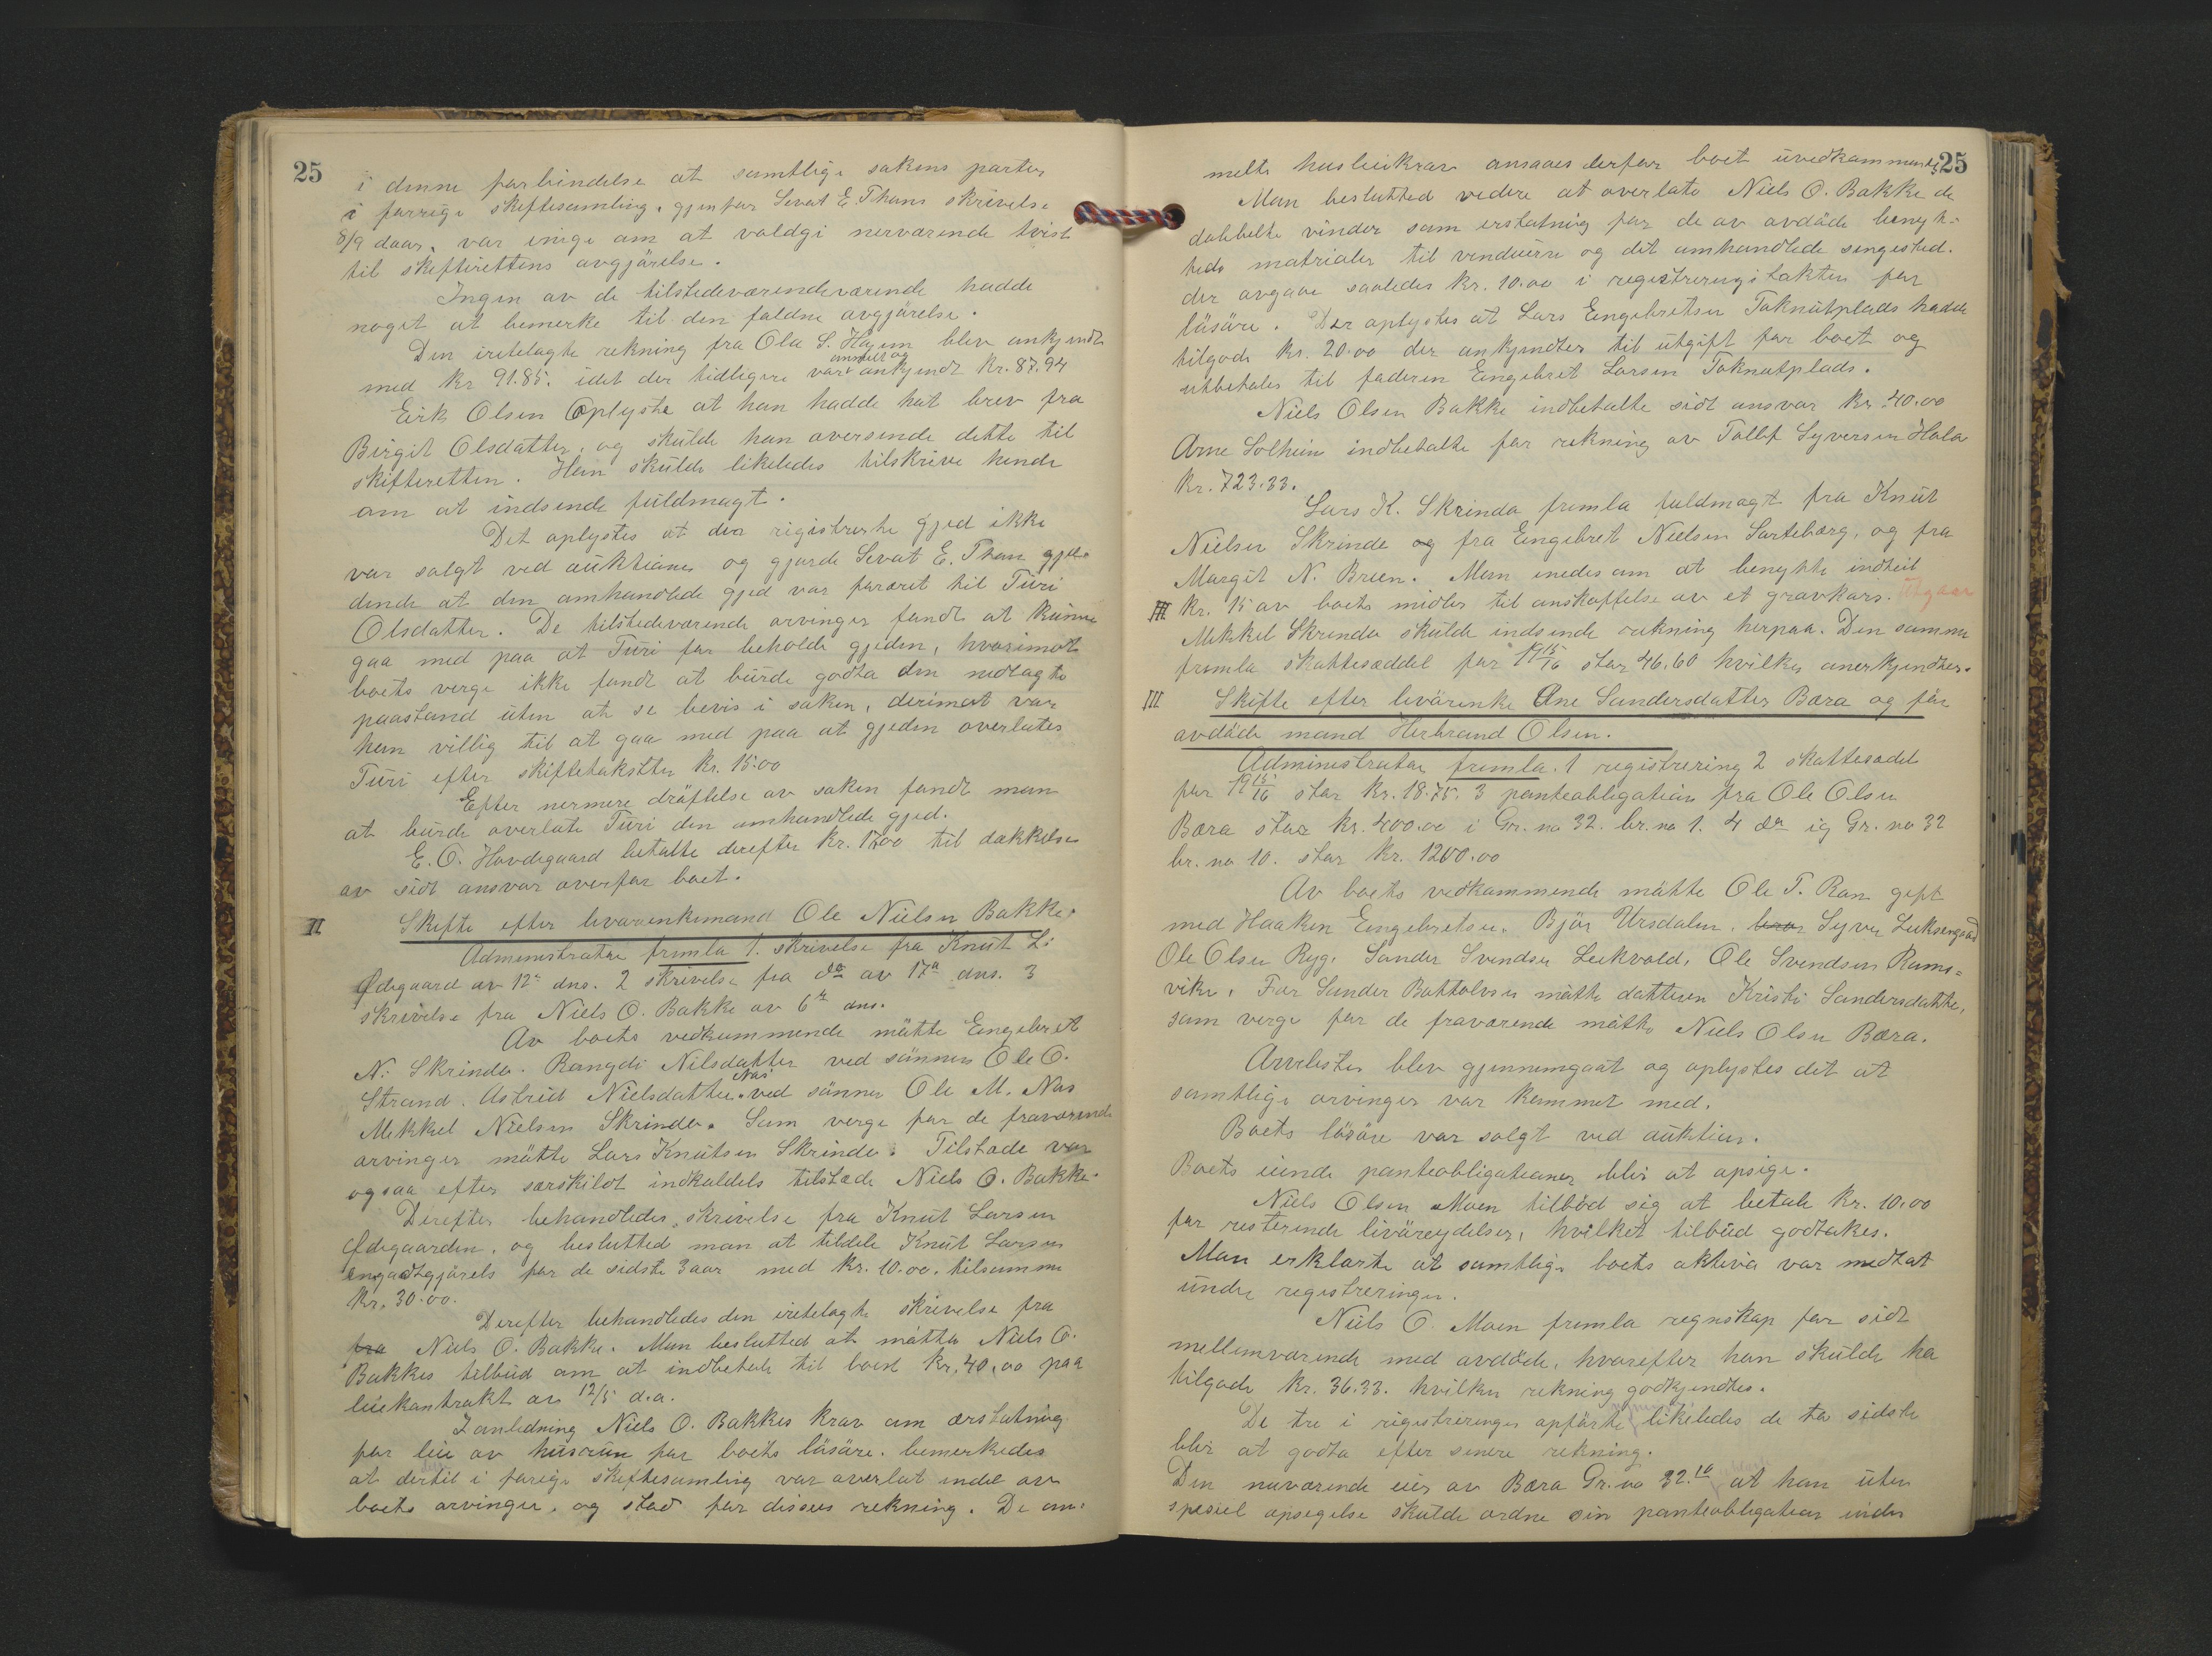 25
i denne forbindelse at samtlige sakens parter
i forrige skiftesamling, gjenfor Sevat E. Thons skrivelse
8/9 daar, var enige om at voldgi nerværende tvist
til skifterettens avgjörelse.
Ingen av de tilstedeværendeværende hadde
noget at bemerke til den faldne avgjörelse.
Den iretelagte rekning fra Ola S. Hagen blev ankjendt
anmeldt og
med kr 91.85. idet der tidligere var ankjendt kr. 87.94
Eirk Olsen Oplyste at han hadde hat brev fra
Birgit Olsdatter, og skulde han oversende dette til
skifteretten. Han skulde likeledes tilskrive hende
om at indsende fuldmagt.
Det oplystes at den registrerte gjed ikke
var solgt ved auktionen og gjorde Sevat E. Thon gjæl-
dende at den omhandlede gjed var foræret til Turi
Olsdatter. De tilstedeværende arvinger fandt at kunne
gaa med paa at Turi far beholde gjeden, hvorimot
boets verge ikke fandt at burde godta den nedlagte
paastand uten at se bevis i saken, derimot var
han villig til at gaa med paa at gjeden overlates
Turi efter skiftetaksten kr. 15.00
Efter nermere dröftelse av saken fandt man
at burde overlate Turi den omhandlede gjed.
E. O. Hovdegaard betalte derefter kr. 17.00 til dækkelse
av sidt ansvar overfor boet.
II Skifte efter levarenkemand Ole Nielsen Bakke.
Administrator fremla 1. skrivelse fra Knut L.
Ödegaard av 12te dns. 2 skrivelse fra do av 17de dns. 3
skrivelse fra Niels O. Bakke av 6te dns.
Av boets vedkommende mötte Engebret
N. Skrinde. Rangdi Nilsdatter ved sönnen Ole O.
Næs
Strand. Astrid Nielsdatter ved sönnen Ole M. Næs
Mekkel Nielsen Skrinde. Som verge for de fraværende
arvinger mötte Lars Knutsen Skrinde. Tilstede var
ogsaa efter særskildt indkaldels tilstæde Niels O. Bakke.
Derefter behandledes skrivelse fra Knut Larsen
Ödegaarden, og beslutted man at tildele Knut Larsen
engodtgjörels for de sidste 3 aar med kr. 10.00. tilsamme
kr. 30.00.
Derefter behandledes den iretelagte skrivelse fra
fra Niels O. Bakke. Man beslutted at motta Niels O.
Bakkes tilbud om at indbetale til boet kr. 40.00 paa
leiekontrakt av 12/5 d.a.
I anledning Niels O. Bakkes krav om ærstatning
for leie av husrum for boets lösöre. bemerkedes
at dertil i forige skiftesamling var overlat endel av
boets arvinger, og stod for disses rekning. De an-
25
melte husleiekrav ansaaes derfor boet uvedkommende
Man besluttted videre at overlate Niels O. Bakke de
dobbelte vinder som erstatning for de av avdöde benyt-
tede matrialer til vinduerne og det omhandlede sengested.
der avgaar saaledes kr. 10.00 i registreringstakten for
lösöre. Der oplystes at Lars Engebretsen Toknutplads hadde
tilgode kr. 20.00 der ankjendtes til utgift for boet og
utbetales til faderen Engebret Larsen Toknutplads.
Niels Olsen Bakke indbetalte sidt ansvar kr. 40.00
Arne Solheim indbetalte for rekning av Tollef Syversen Hola
kr. 723.33.
Lars K. Skrinde fremla fuldmagt fra Knut
Nielsen Skrinde og fra Engebret Nielsen Sarteberg, og fra
Margit N. Breen. Man enedes om at benytte indtil
kr. 15 av boets midler til anskaffelse av et gravkors. Utgaar
III. Mekkel Skrinde skulde indsende rekning herpaa. Den samme
fremla skattesæddel for 1915/16 stor 46.60 hvilken anerkjendtes.
III Skifte efter levörenke Ane Sandersdatter Bæra og för
avdöde mand Herbrand Olsen.
Administrator fremla. 1 registrering 2 skattesedel
for 1915/16 stor kr. 18.75. 3 panteobligation fra Ole Olsen
Bæra stor kr. 400.00 i Gr. no 32. br. no 1. 4 do ig Gr. no 32
br. no 10. stor kr. 1200.00
Av boets vedkommende mötte Ole T. Ran gift
med Haaken Engebretsen. Björ Ursdalen. Syver Luksengaard
Ole Olsen Ryg. Sander Svendsen Leekvold, Ole Svendsen Rams-
vike. For Sander Bottolvsen mötte datteren Kristi Sandersdatter,
som verge for de fraværende mötte Niels Olsen Bæra.
Arvelisten blev gjennemgaat og oplystes det at
samtlige arvinger var kommet med.
Boets lösöre var solgt ved auktion.
Boets eiende panteobligationer blir at opsige.
Niels Olsen Moen tilböd sig at betale kr. 10.00
for resterende livöreydelser, hvilket tilbud godtakes.
Man erklærte at samtlige boets aktiva var medtat
under registreringen.
Niels O. Moen fremla regnskap for sidt
mellemværende med avdöde, hvorefter han skulde ha
tilgode kr. 36.33. hvilken rekning godkjendtes.
De tre i registreringen opförte likeledes de to sidste
blir at godta efter senere rekning.
Den nuværende eier av Bæra Gr. no 32.10 at han uten
spesiel opsegelse skulde ordne sin panteobligation inden